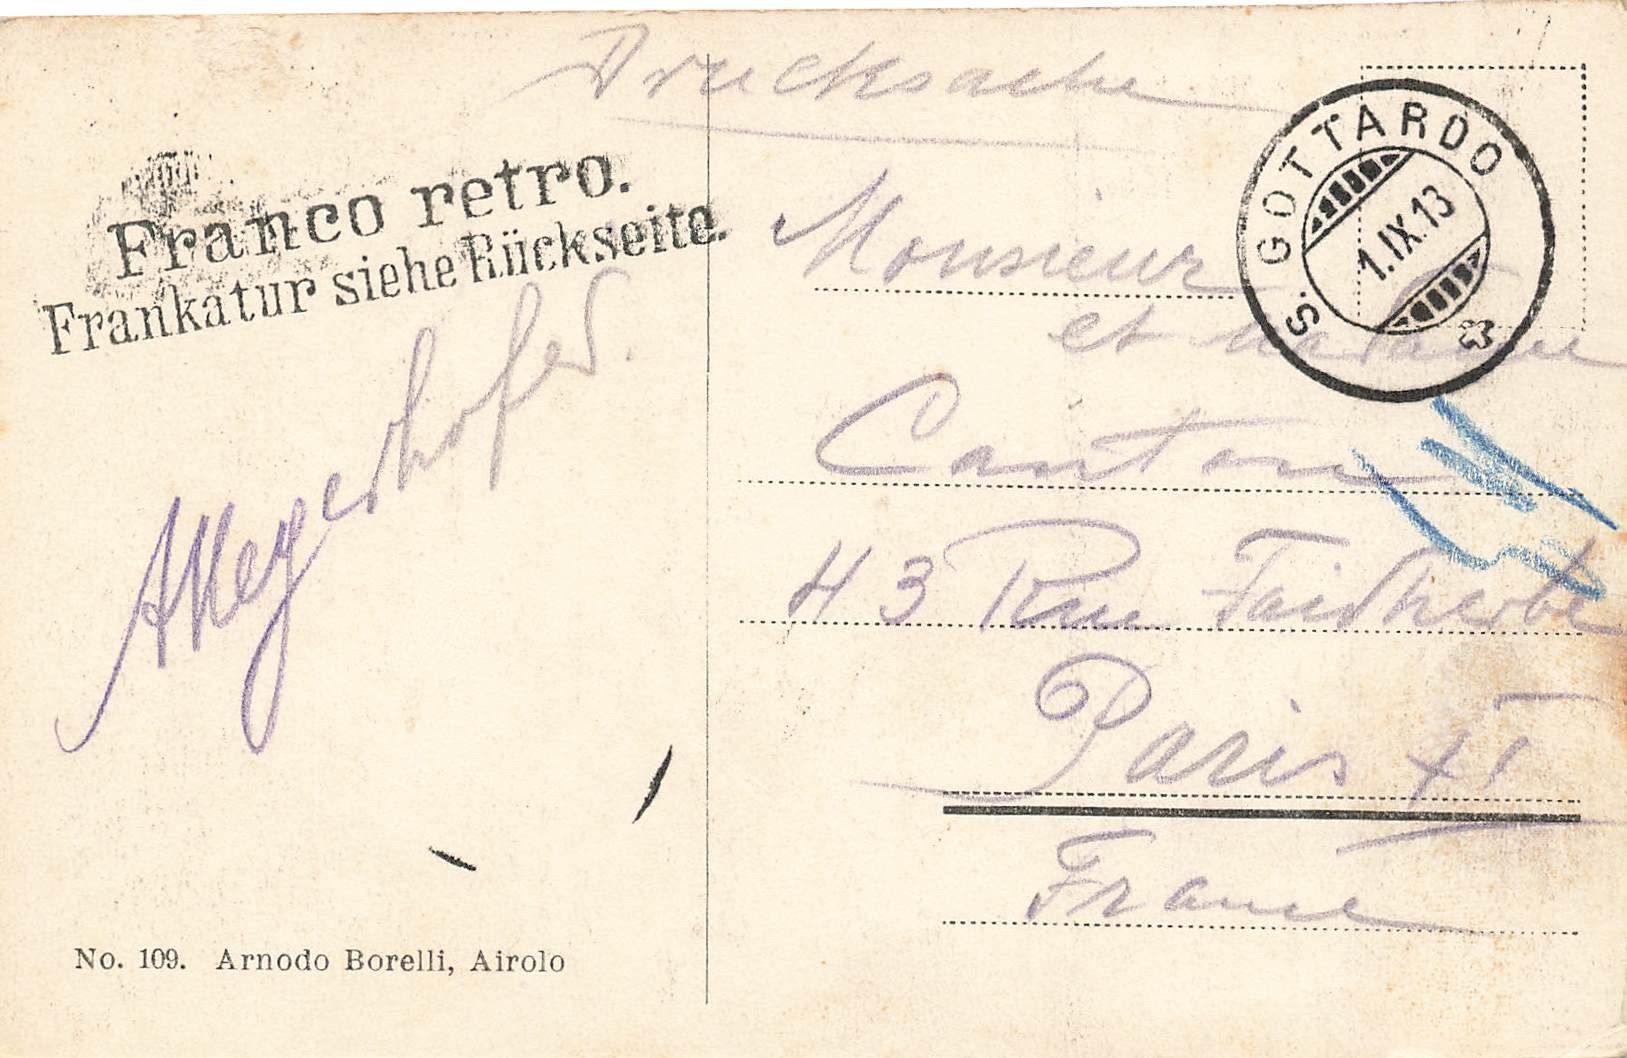 Drucksache
Franco retro.
Frankatur siehe Rückseite.
S. GOTTARDO
1.IX.13
Monsieur
et Madame
43 Rue Faidherbe
Paris XI
France
No. 109. Arnodo Borelli, Airolo